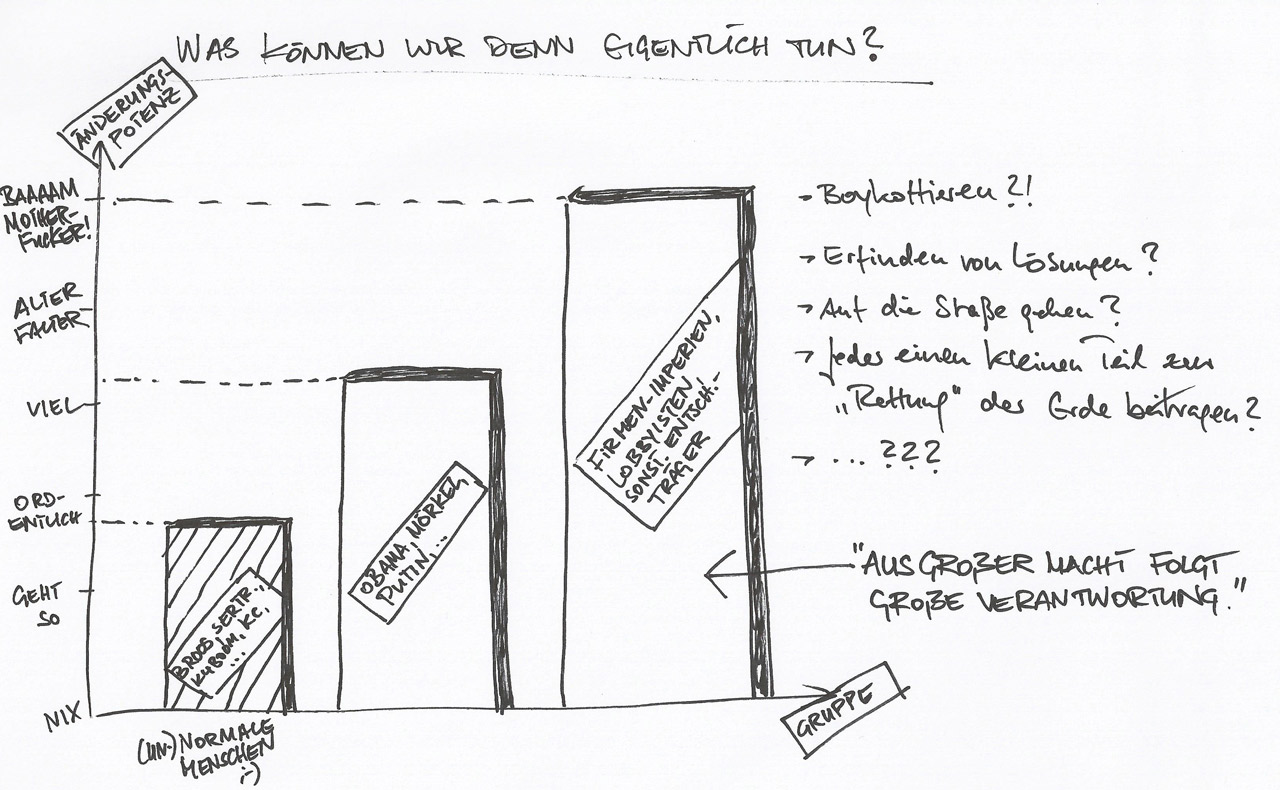 WAS KÖNNEN WIR DENN EIGENTLICH TUN?
ÄNDERUNGS-
POTENZ
BAAAAM
MOTHER-
FUCKER!
ALTER
FALTER
VIEL
ORD-
ENTLICH
GEHT
SO
NIX
BROOS, SERTR.,
KUBODM, K.C.,
...
(UN-)NORMALE
MENSCHEN
;-)
OBAMA, MÖRKEL,
PUTIN, ...
FIRMEN-IMPERIEN,
LOBBYISTEN
SONST. ENTSCH.-
TRÄGER
GRUPPE
→ Boykottieren?!
→ Erfinden von Lösungen?
→ Auf die Straße gehen?
→ Jeder einen kleinen Teil zur
„Rettung" der Erde beitragen?
→ ... ???
"AUS GROßER MACHT FOLGT
GROßE VERANTWORTUNG."